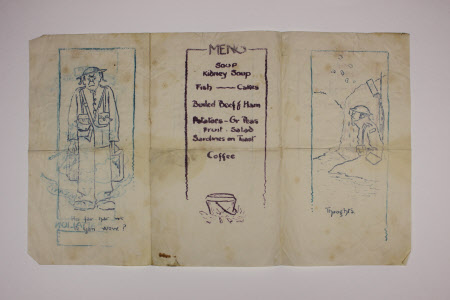 MENU
SOUP
Kidney Soup
Fish — Cakes
Boiled Beef & Ham
Potatoes - Gr Peas
Fruit - Salad
Sardines on Toast
Coffee
Thoughts